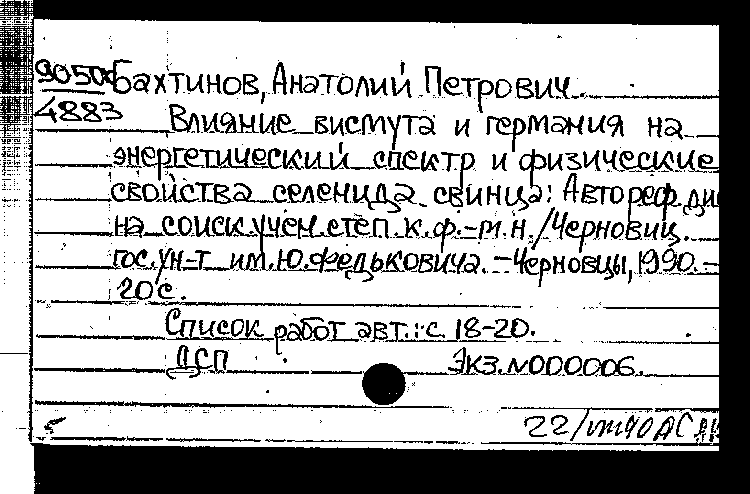 Бахтинов, Анатолий Петрович
4883
Влияние висмута и германия на
энергетический спектр и физические
свойства селенида свинца: Автореф. ди
на соиск. учен. степ. к.ф.-м.н. / Черновиц.
гос. ун-т им. Ю. Федьковича. – Черновцы, 1990. –
20 с.
Список работ авт.: с. 18-20.
ДСП Экз. N000006.
22/